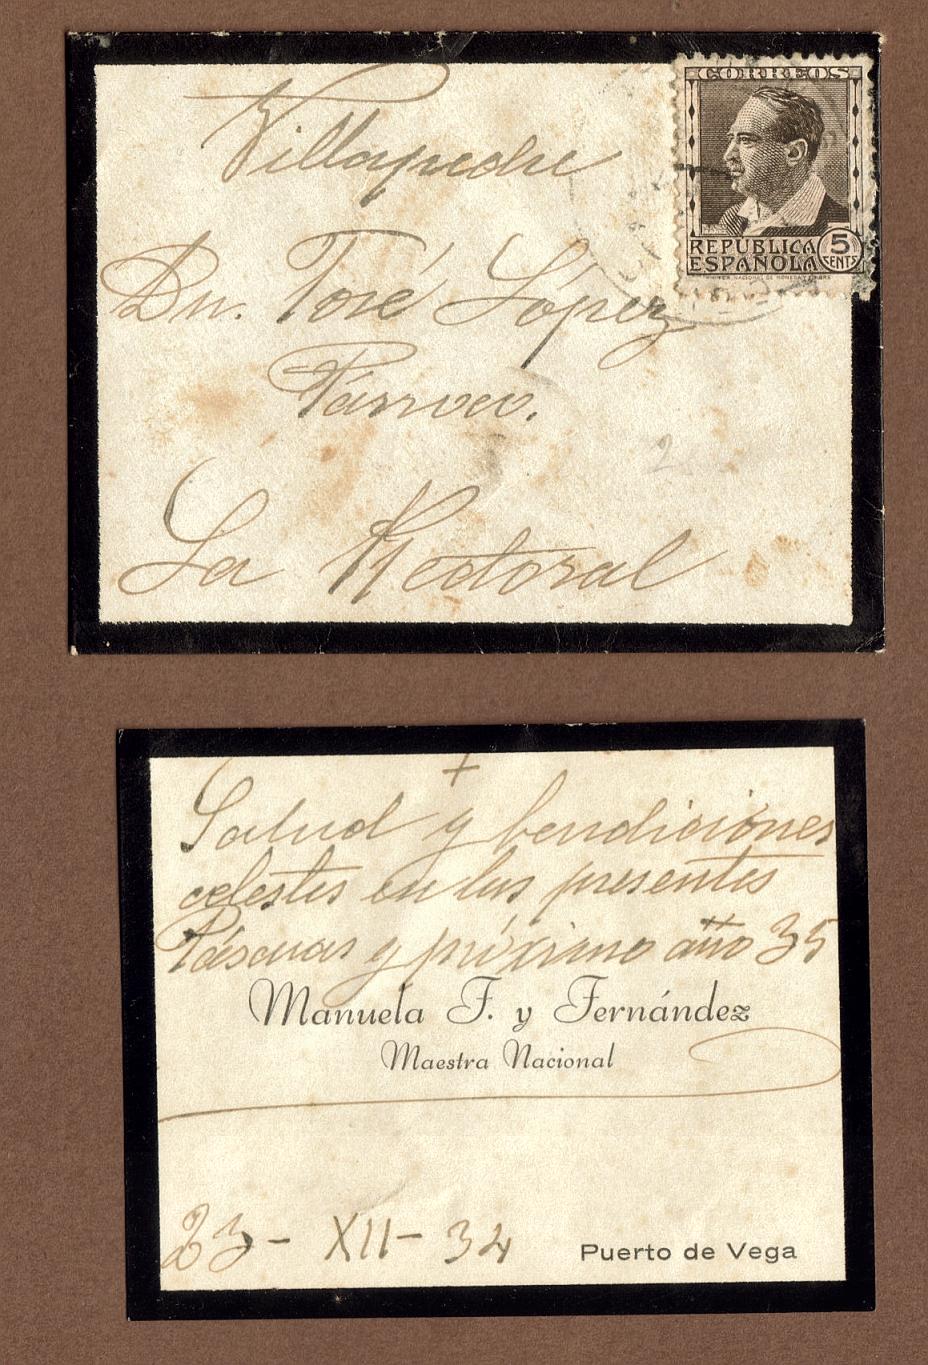 CORREOS
REPÚBLICA
ESPAÑOLA
5
CENTS
Villapedre
Dn. José López
Párroco.
La Rectoral
+
Salud y bendiciones
celestes en las presentes
Páscuas y próximo año 35
Manuela F. y Fernández
Maestra Nacional
23- XII- 34
Puerto de Vega